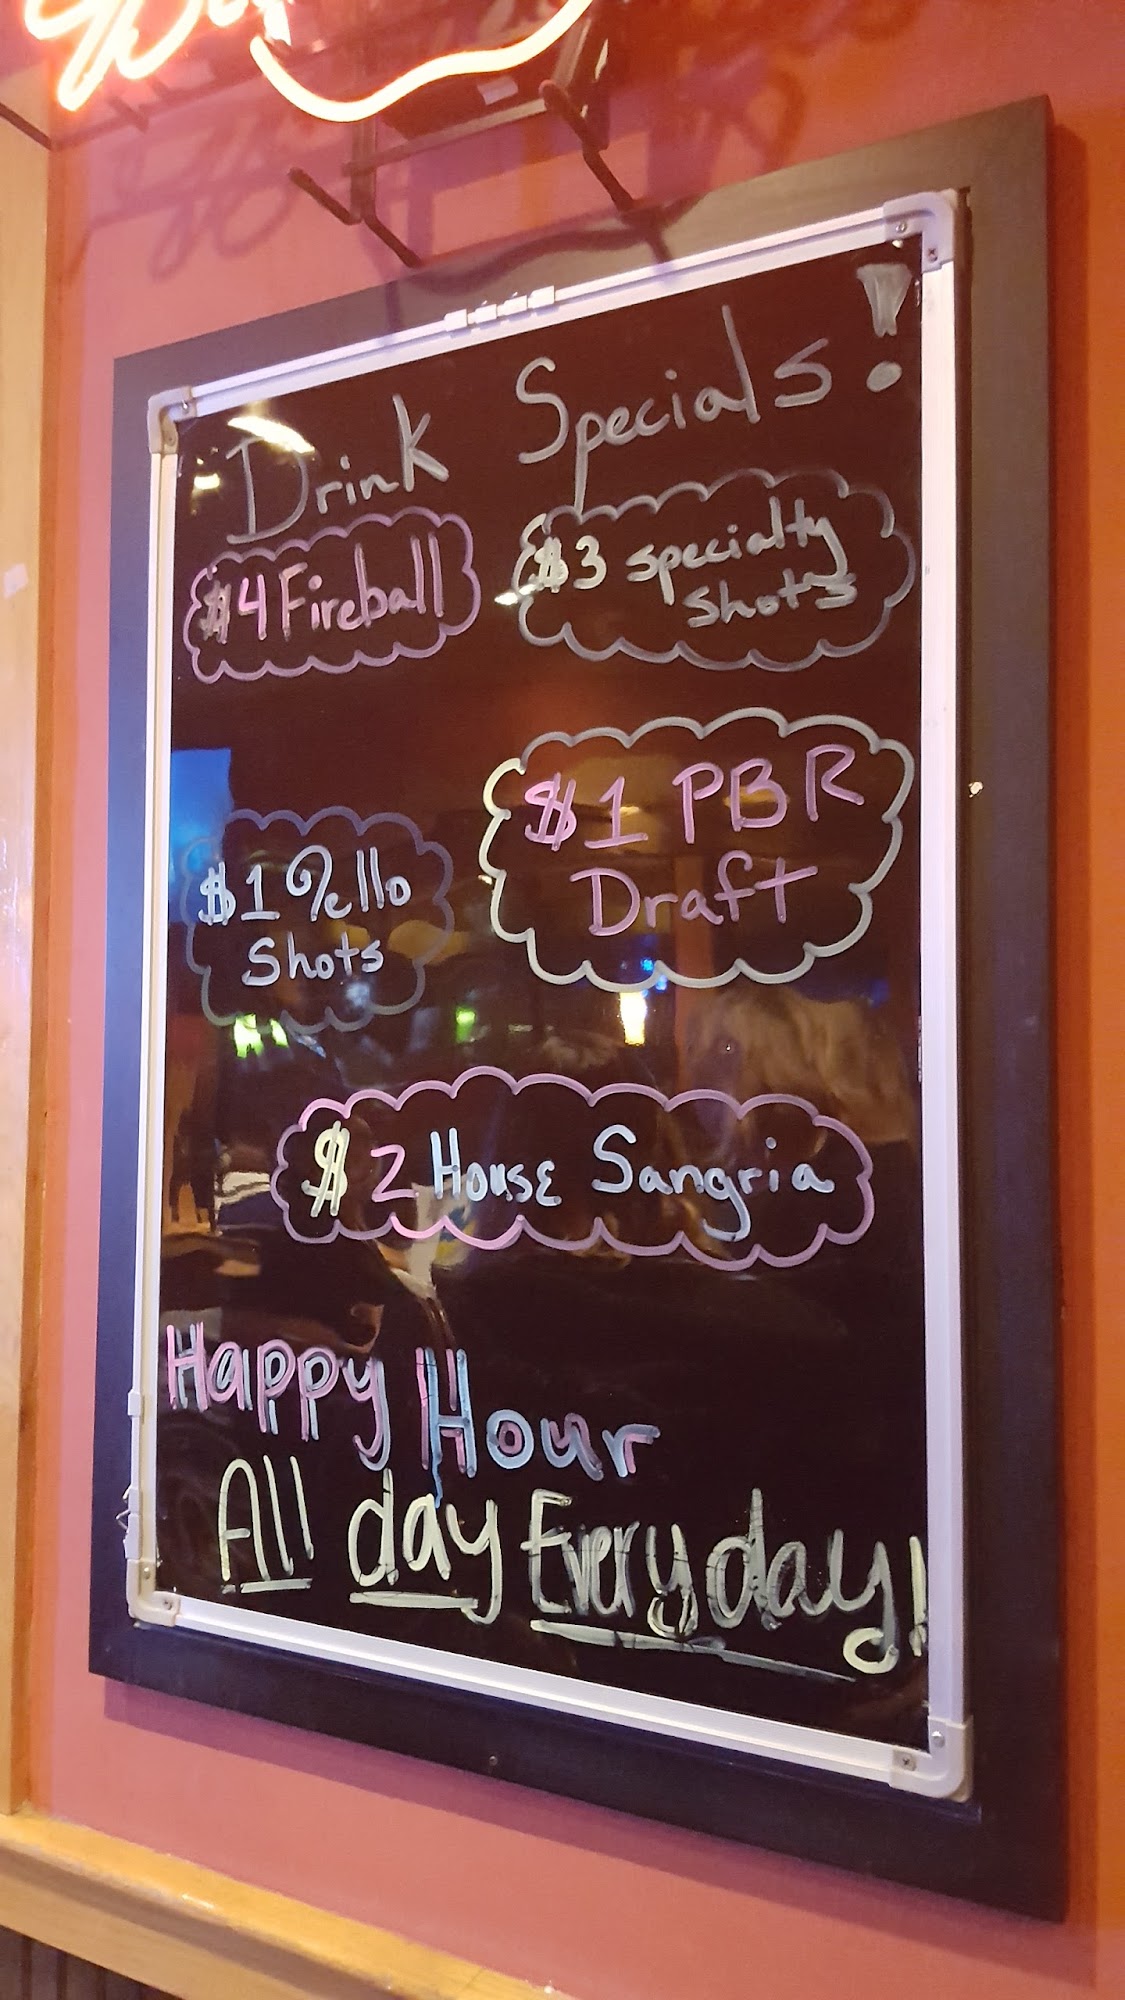 Drink Specials!
$4 Fireball
$3 specialty
shots
$1 PBR
Draft
$1 Jello
Shots
$2 House Sangria
Happy Hour
All day Everyday!